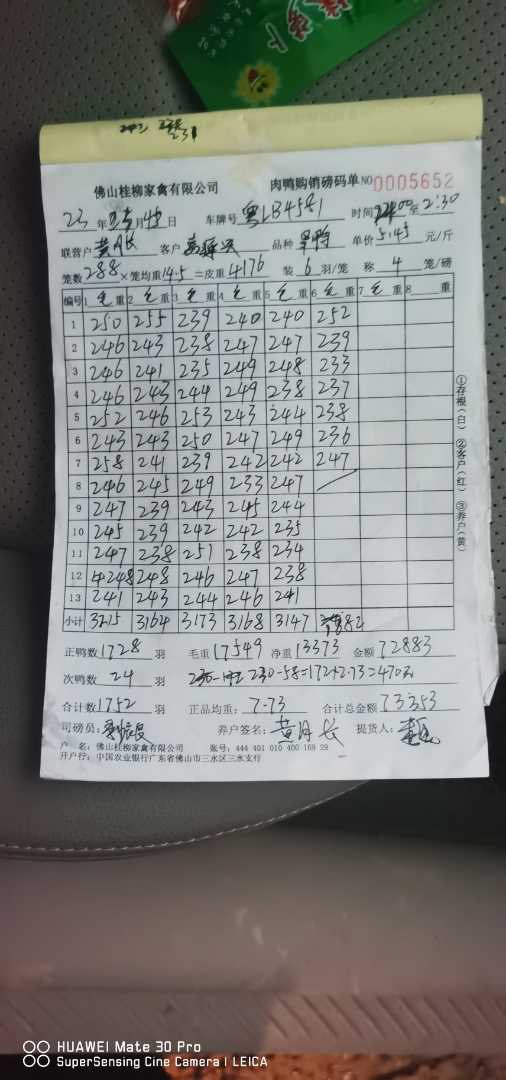 佛山桂柳家禽有限公司 肉鸭购销磅码单 NO 0005652
23 年 月 4 日 车牌号 粤LB4581 时间 至 2:30
联营户 黄月长 客户 品种 单价 5.45 元/斤
笼数 288 ×笼均重 14.5 =皮重 4176 装 6 羽/笼 称 4 笼/磅
编号 1 毛 重 2 毛 重 3 毛 重 4 毛 重 5 毛 重 6 毛 重 7 毛 重 8 重
1 250 255 239 240 240 252
2 246 243 238 247 247 239
3 246 241 235 249 248 233
4 246 243 244 249 238 237
5 252 246 253 243 244 238
6 243 243 250 247 249 236
7 258 241 239 242 242 247
8 246 245 249 233 247
9 247 239 243 245 244
10 245 239 242 242 235
11 247 238 251 238 234
12 248 248 246 247 238
13 241 243 244 246 241
小计 3215 3164 3173 3168 3147 1682
正鸭数 1728 羽 毛重 17549 净重 13373 金额 72883
次鸭数 24 羽 230-58=172×2.73=470元
合计数 1752 羽 正品均重: 7.73 合计总金额 73353
司磅员: 养户签名: 黄月长 提货人:
户 名: 佛山桂柳家禽有限公司 账号: 444 401 010 400 169 29
开户行: 中国农业银行广东省佛山市三水区三水支行
①存根(白) ②客户(红) ③养户(黄)
HUAWEI Mate 30 Pro
SuperSensing Cine Camera | LEICA